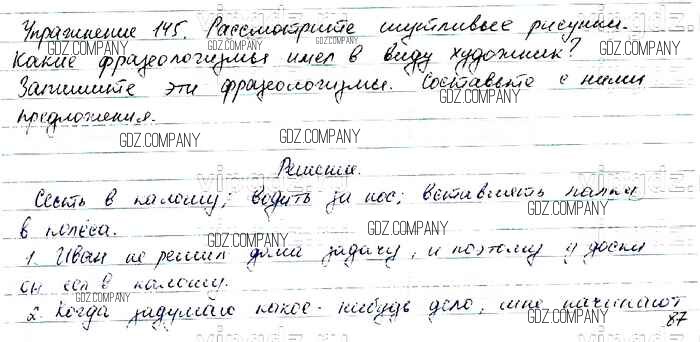 Упражнение 145. Рассмотрите шутливые рисунки.
Какие фразеологизмы имел в виду художник?
Запишите эти фразеологизмы. Составьте с ними
предложения.
Решение.
Сесть в калошу; водить за нос; вставлять палки
в колёса.
1. Иван не решил дома задачу, и поэтому у доски
он сел в калошу.
2. Когда задумаю какое-нибудь дело, мне начинают
87
GDZ.COMPANY